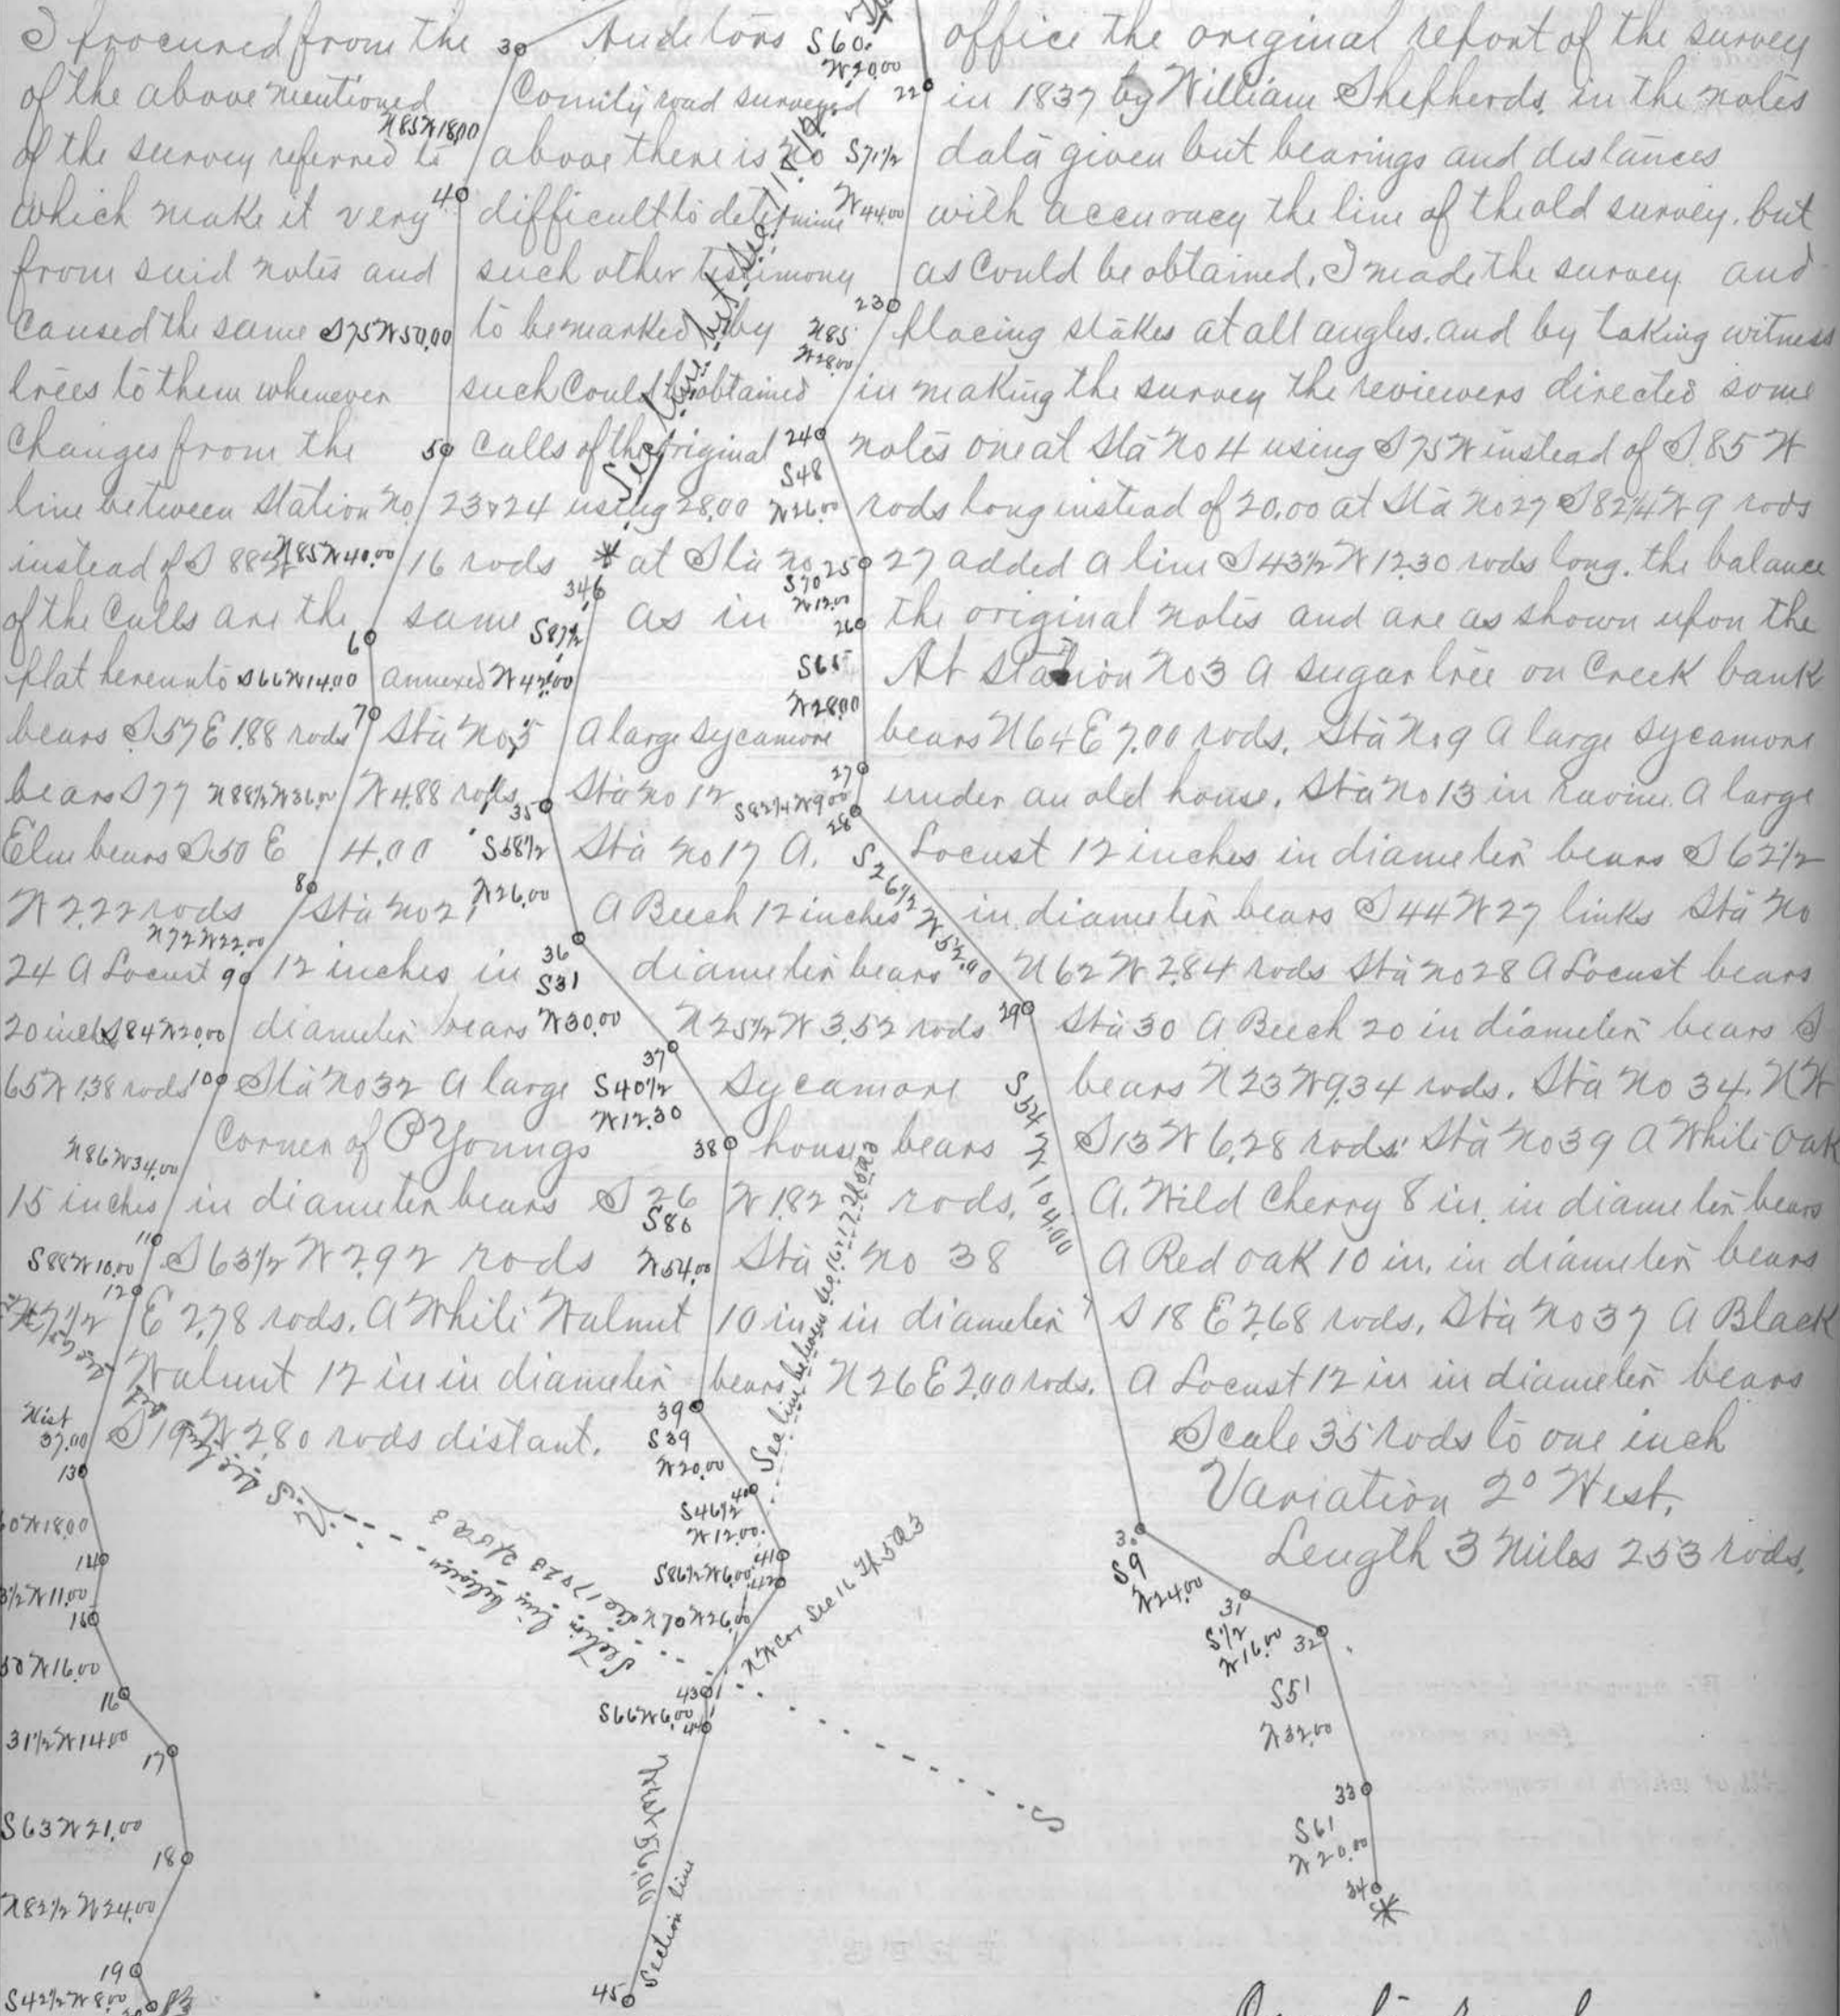 I procured from the Auditors office the original report of the survey
of the above mentioned County road surveyed in 1837 by William Shepherds. in the notes
of the survey referred to above there is no data given but bearings and distances
which make it very difficult to determine with accuracy the line of the old survey. but
from said notes and such other testimony as could be obtained, I made the survey and
caused the same to be marked by placing stakes at all angles, and by taking witness
trees to them whenever such could be obtained in making the survey the reviewers directed some
changes from the calls of the original notes one at Sta No 4 using S75W instead of S.85 W
line between station no 23 & 24 using 28.00 rods long instead of 20.00 at Sta No 27 S82 1/4 W 9 rods
instead of S 88 W 16 rods * at Sta no 27 added a line S 43 1/2 W 12.30 rods long. the balance
of the calls are the same as in the original notes and are as shown upon the
plat hereunto annexed At station No 3 A sugar tree on Creek bank
bears S57E 1.88 rods Sta No 5 A large sycamore bears N64E 7.00 rods. Sta No 9 A large sycamore
bears S 77 W 4.88 rods Sta no 12 under an old house. Sta no 13 in ravine. A large
Elm bears S.50 E 4.00 Sta no 17 A. Locust 12 inches in diameter bears S 62 1/2
W 2.22 rods Sta no 21 A Beech 12 inches in diameter bears S 44 W 27 links Sta no
24 A Locust 12 inches in diameter bears N 62 W 2.84 rods Sta no 28 A Locust bears
20 inches diameter bears N 25 1/2 W 3.52 rods Sta 30 A Beech 20 in diameter bears S
65 W 1.38 rods Sta no 32 A large Sycamore bears N 23 W 9.34 rods. Sta no 34. N W
Corner of P Youngs house bears S13 W 6.28 rods Sta no 39 A White Oak
15 inches in diameter bears S 26 W 1.82 rods. A. Wild Cherry 8 in. in diameter bears
S 63 1/2 W 2.92 rods Sta no 38 A Red oak 10 in. in diameter bears
N 71/2 E 2.78 rods. A White Walnut 10 in. in diameter S 18 E 2.68 rods, Sta no 37 A Black
Walnut 12 in in diameter bears N 26 E 2.00 rods. A Locust 12 in in diameter bears
S 19 W 2.80 rods distant.
Scale 35 rods to one inch
Variation 2° West.
Length 3 Miles 253 rods.
3
N85W18.00
4
S75W50.00
5
N85W40.00
6
S66W14.00
7
N88 1/2 W36.00
8
N72W22.00
9
S84W20.00
10
N86W34.00
11
S88W10.00
12
West
37.00
13
14
15
16
31 1/2 W14.00
17
S63W21.00
18
N82 1/2 W24.00
19
S42 1/2 W8.00
S60
W20.00
22
S71 1/2
W44.00
23
N85
W28.00
24
S48
W26.00
25
S70
W12.00
26
S65
W28.00
27
S82 1/4 W9.00
28
S26 1/2 W52.00
29
S54 W104.00
30
S9
W24.00
31
S 1/2
W16.00
32
S51
W32.00
33
S61
W20.00
34
*
34
S87 1/2
W42.00
35
S68 1/2
W26.00
36
S31
W30.00
37
S40 1/2
W12.30
38
S86
W54.00
39
S39
W20.00
40
S46 1/2
W12.00
41
S86 1/2 W6.00
42
N70W26.00
43
S66W6.00
44
West 56.00
Section line
45
Sec line between Sec 16 & 17 T5 R3
Section line between Sec 17 & 20 T5 R3
NW Cor Sec 16 T5 R3
S